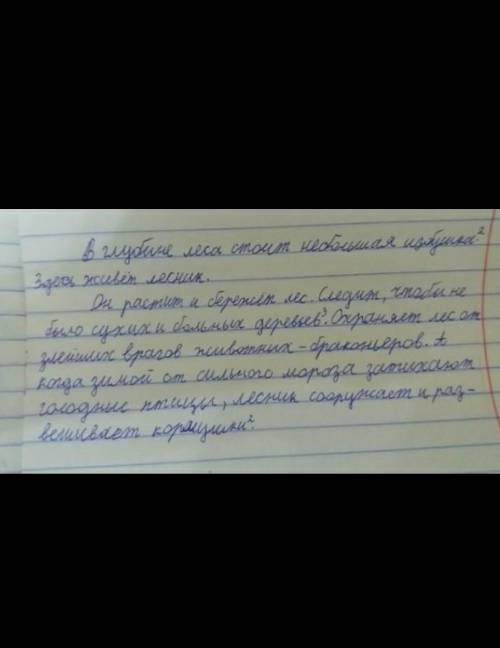 В глубине леса стоит небольшая избушка².
Здесь живёт лесник.
Он растит и бережёт лес. Следит, чтобы не
было сухих и больных деревьев³. Охраняет лес от
злейших врагов животных - браконьеров. А
когда зимой от сильного мороза затихают
голодные птицы, лесник сооружает и раз-
вешивает кормушки².